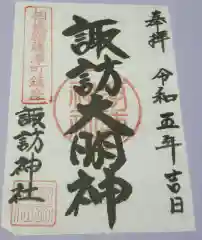 奉拝 令和五年吉日
諏訪大明神
諏訪神社